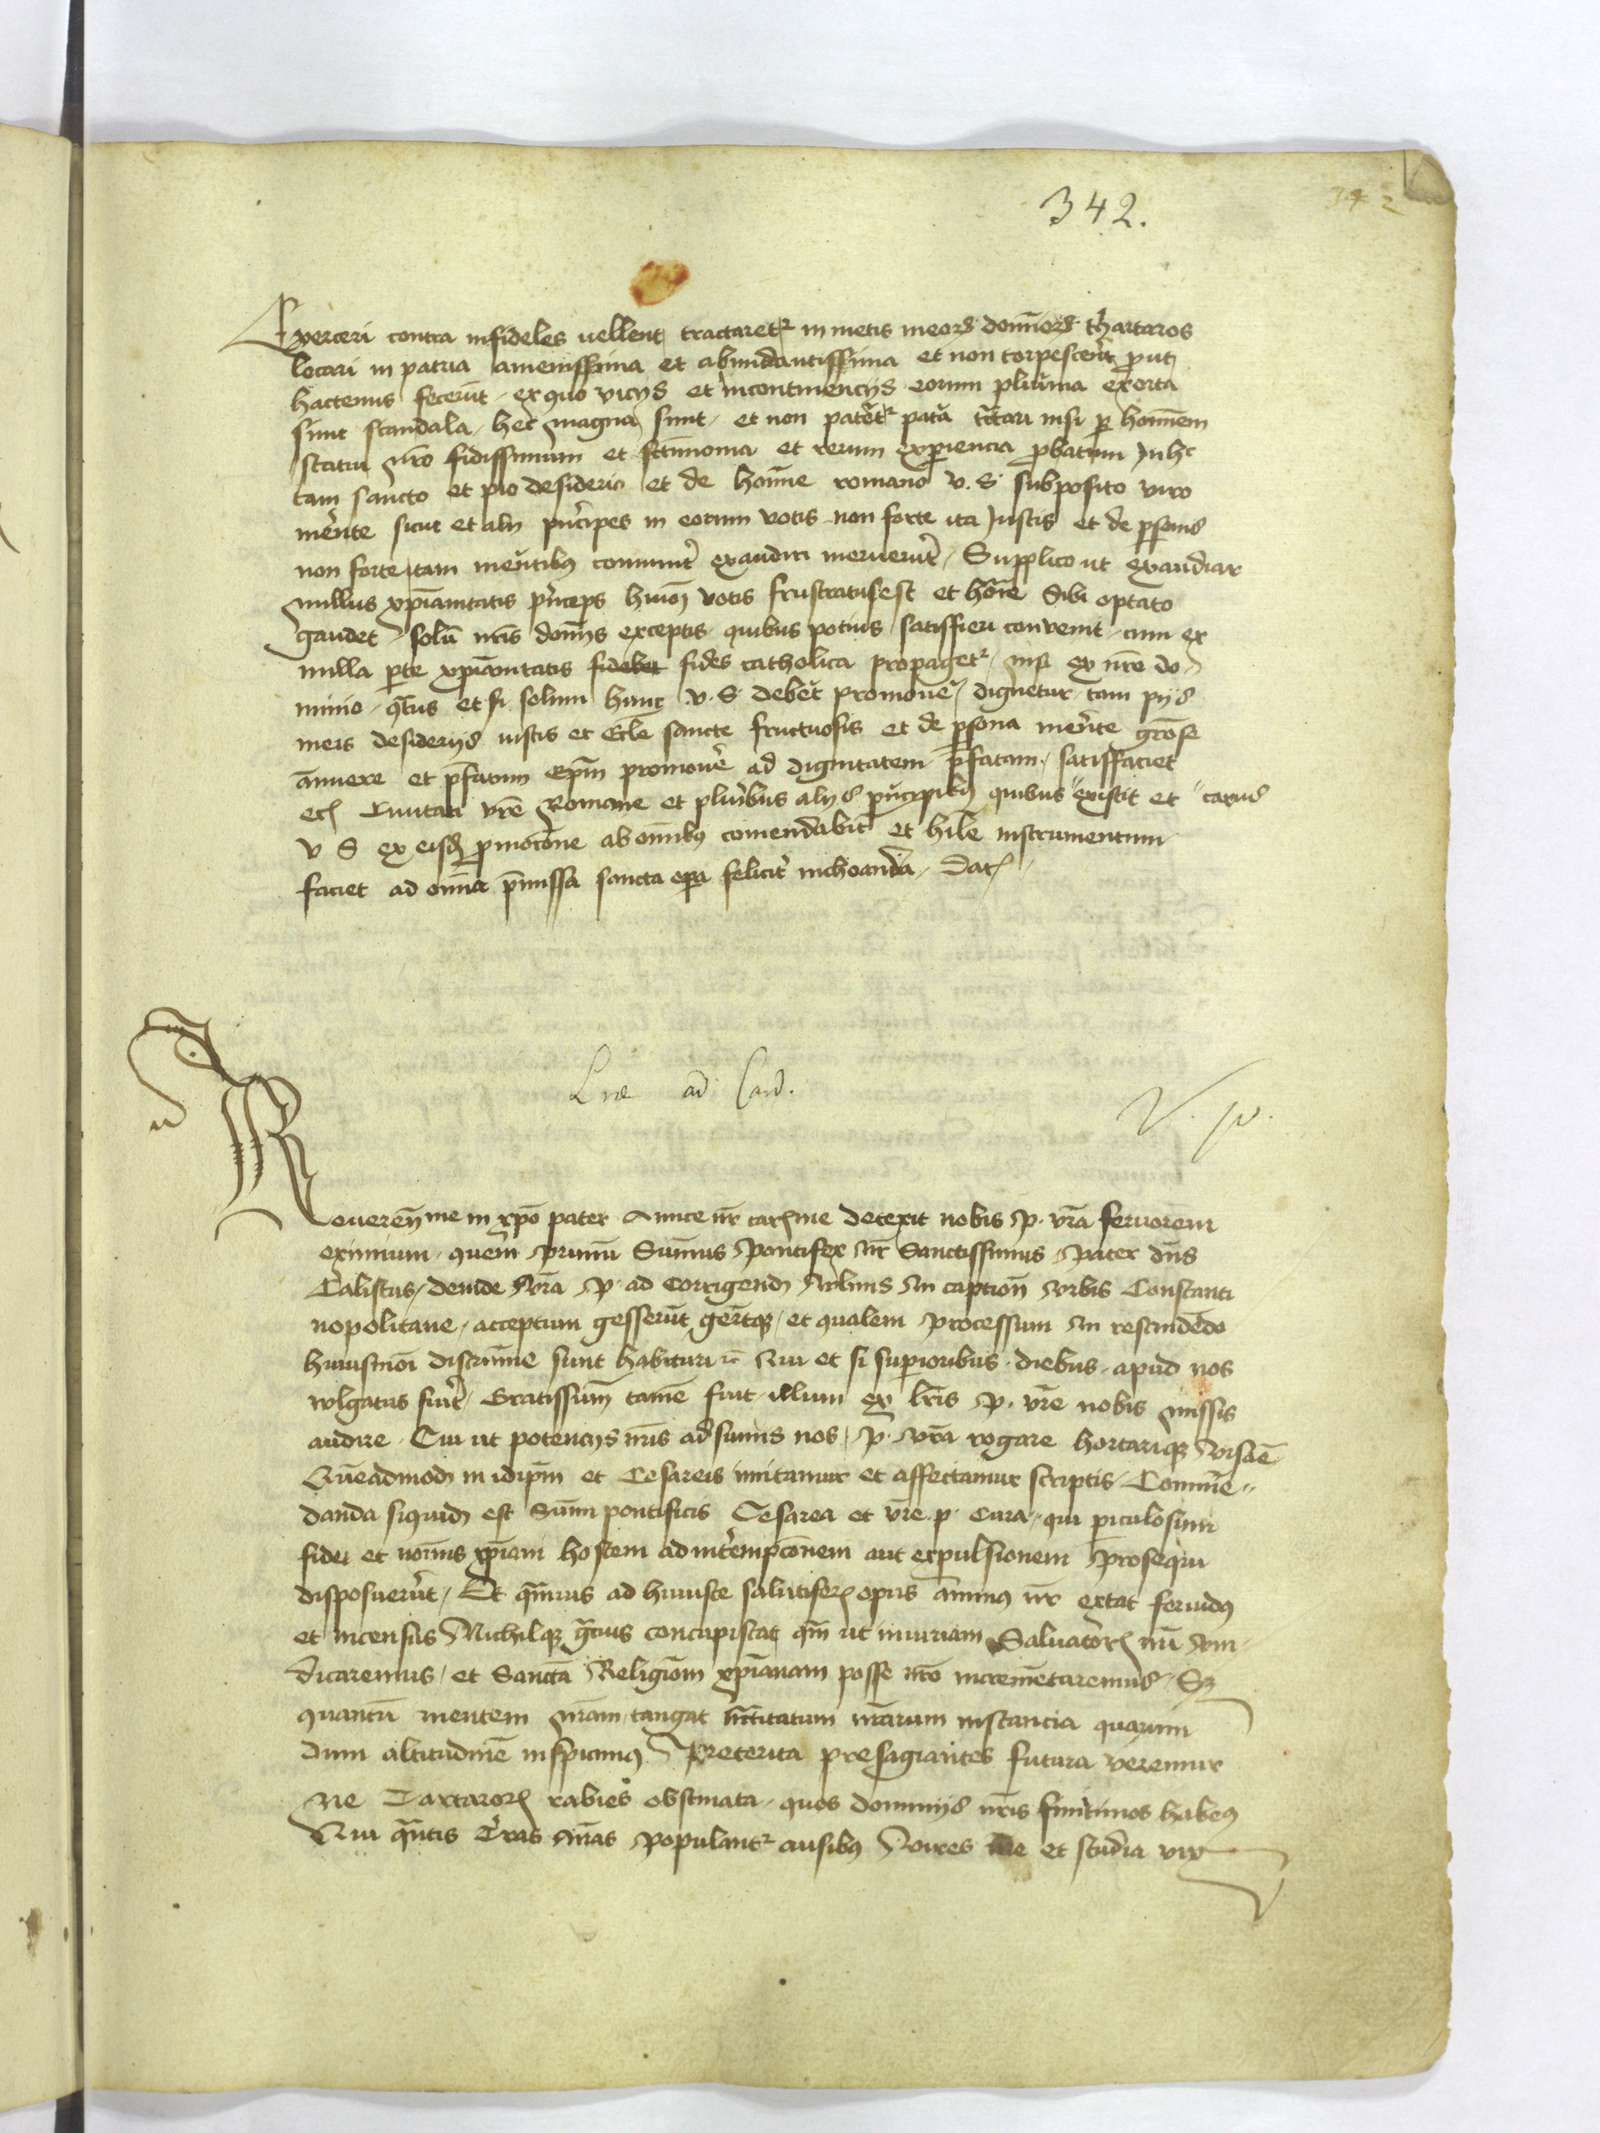 342.
342
Exerceri contra infideles vellent tractaretr in metis meorum dominorum thartaros
locari in patria amenissima et abundantissima et non torpescerent prout
hactenus fecerūt ex quo vicijs et incontinencijs eorum plurima exorta
sunt scandala, hec magna sunt et non pateretr tractari nisi per hominem
statui nr̄o fidissimum et rerum experiencia probatum In hoc
tam sancto et pio desiderio et de homine romano v. S. subposito viro
merente sicut et alij principes in eorum votis non forte ita Justis et de personis
non forte tam merentibus exaudiri meruerunt, Supplico ut exaudiar
nullus xpianitatis princeps huiusmodi votis frustratus est et homine sibi optato
gaudet, solum nr̄is dominis exceptis quibus potius satisfieri convenit, cum ex
nulla parte xpianitatis fidelet fides catholica propagetr, nisi ex nr̄o do
minio et si solum hunc v. S. deberet promovere, dignetur tam pijs
meis desiderijs iustis et Eccle sancte fructuosis et de persona merente
annuere et prefatum epm promovere ad dignitatem prefatam, satisfaciet
Civitati vr̄e Romane et pluribus alijs principibus quibus existit et carus
v S ex eisdem promocione ab omnibus comendabitr et instrumentum
faciet ad omnia premissa sancta opera feliciter inchoanda, Dat
Lrae ad Card.
V. p.
Reverendme in xpo pater Amice nr̄ carme detexit nobis p. vr̄a fervorem
eximium, quem primum Summus Pontifex nr̄ Sanctissimus Pater dns
Calistus, deinde vr̄a p. ad corrigendum vulnus in caption urbis Constanti
nopolitane, acceptum gesserunt geruntque, et qualem processum in rescindendo
huiusmoi discrimine sunt habituri Qui et si superioribus diebus apud nos
volgatus fuerit, Gratissimum tamen fuit illum ex lris p. vr̄e nobis missis
audire. Cui ut potencijs nr̄is adsumus nos, p. vr̄a rogare hortarique visa e
Quēadmodum in idipsum et Cesareis imitamur et affectamur scriptis, Commen"
danda siquidem est Summi pontificis Cesarea et vr̄e p. cura, qui periculosum
fidei et nominis xpiani hostem ad interempcionem aut expulsionem prosequi
disposuerunt, Et quamvis ad huiusce salutiferum opus animus nr̄ extat fervidus
et incensus Nichilque gratius concupiscat quam ut iniuriam Salvatoris nr̄i vin
dicaremus, et Sanctam Religionem xpianam posse nr̄o incrementaremus, Sed
quantum mentem nr̄am tangat instancia quarum
dum altitudinē inspicimus Preterita presagiantes futura veremur
Ne Tartarorum rabies obstinata, quos dominijs nr̄is finitimos habemus
Qui quantis terras nr̄as populantr ausibus Vires et studia vix